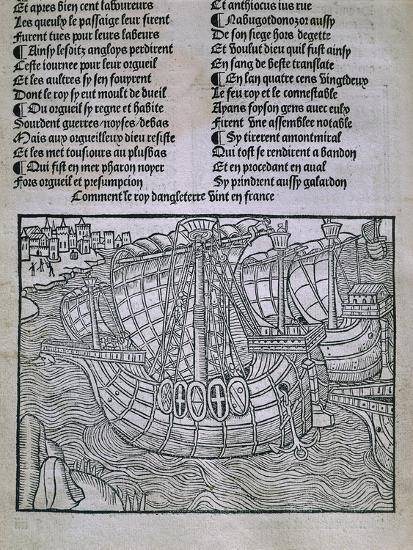 Et apres bien cent laboureurs
Les queulx le passaige leur firent
Furent tues pour leurs labeurs
¶ Ainsy lesditz angloys perdirent
Ceste iournee pour leur orgueil
Et les aultres sy sen fouyrent
Dont le roy sy eut moult de dueil
¶ Ou orgueil sy regne et habite
Sourdent guerres/noyses/debas
Mais aux orgueilleux dieu resiste
Et les met tousiours au plusbas
¶ Qui fist en mer pharon noyer
Fors orgueil et presumpcion
Et anthiocus ius rue
¶ Nabugotdonozor aussy
De son siege hors degette
Et voulut dieu quil fust ainsy
En sang de beste translate
¶ En lan quatre cens vingtdeux
Le feu roy et le connestable
Ayans foyson gens avec eulx
Firent vne assemblee notable
¶ Sy tirerent amontmiral
Qui tost se rendirent a bandon
Et en procedant en aual
Sy prindrent aussy galardon
Comment le roy dangleterre vint en france